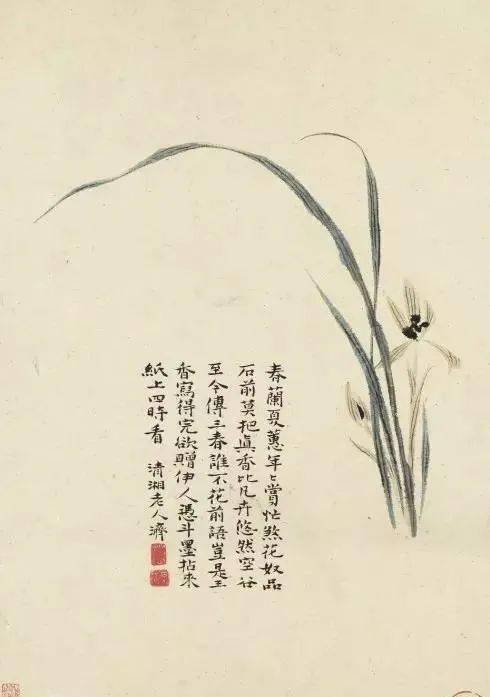 春蘭夏蕙年〻賞忙煞花奴品
石前莫把真香比凡卉悠然空谷
至今傳三春誰不花前語豈是王
香寫得完欲贈伊人憑斗墨拈來
紙上四時看 清湘老人濟